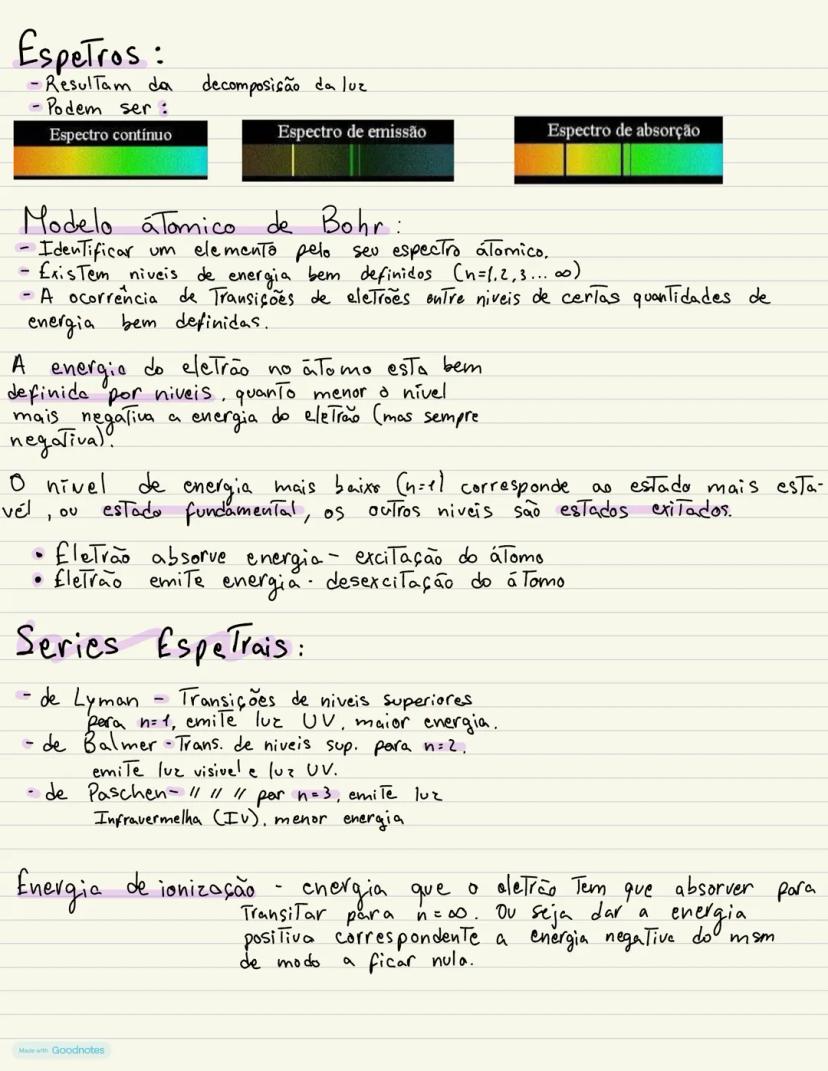 Espetros:
- Resultam da decomposição da luz
- Podem ser:
Espectro contínuo
Espectro de emissão
Espectro de absorção
Modelo átomico de Bohr:
- Identificar um elemento pelo seu espectro átomico.
- Existem niveis de energia bem definidos (n=1,2,3... ∞)
- A ocorrência de Transições de eletrões entre niveis de certas quantidades de
energia bem definidas.
A energia do eletrão no átomo esta bem
definida por niveis, quanto menor o nível
mais negativa a energia do eletrão (mas sempre
negativa).
O nível de energia mais baixo (n=1) corresponde ao estado mais está-
vel, ou estado fundamental, os outros niveis são estados exitados.
• Eletrão absorve energia - excitação do átomo
• Eletrão emite energia - desexcitação do átomo
Series Espetrais:
- de Lyman - Transições de niveis superiores
para n=1, emite luz UV, maior energia.
- de Balmer - Trans. de niveis sup. para n=2,
emite luz visivel e luz UV.
- de Paschen - // // // par n=3, emite luz
Infravermelha (IV), menor energia
Energia de ionização - energia que o eletrão Tem que absorver para
Transitar para n=∞. Ou seja dar a energia
positiva correspondente a energia negativa do msm
de modo a ficar nula.
Made with Goodnotes